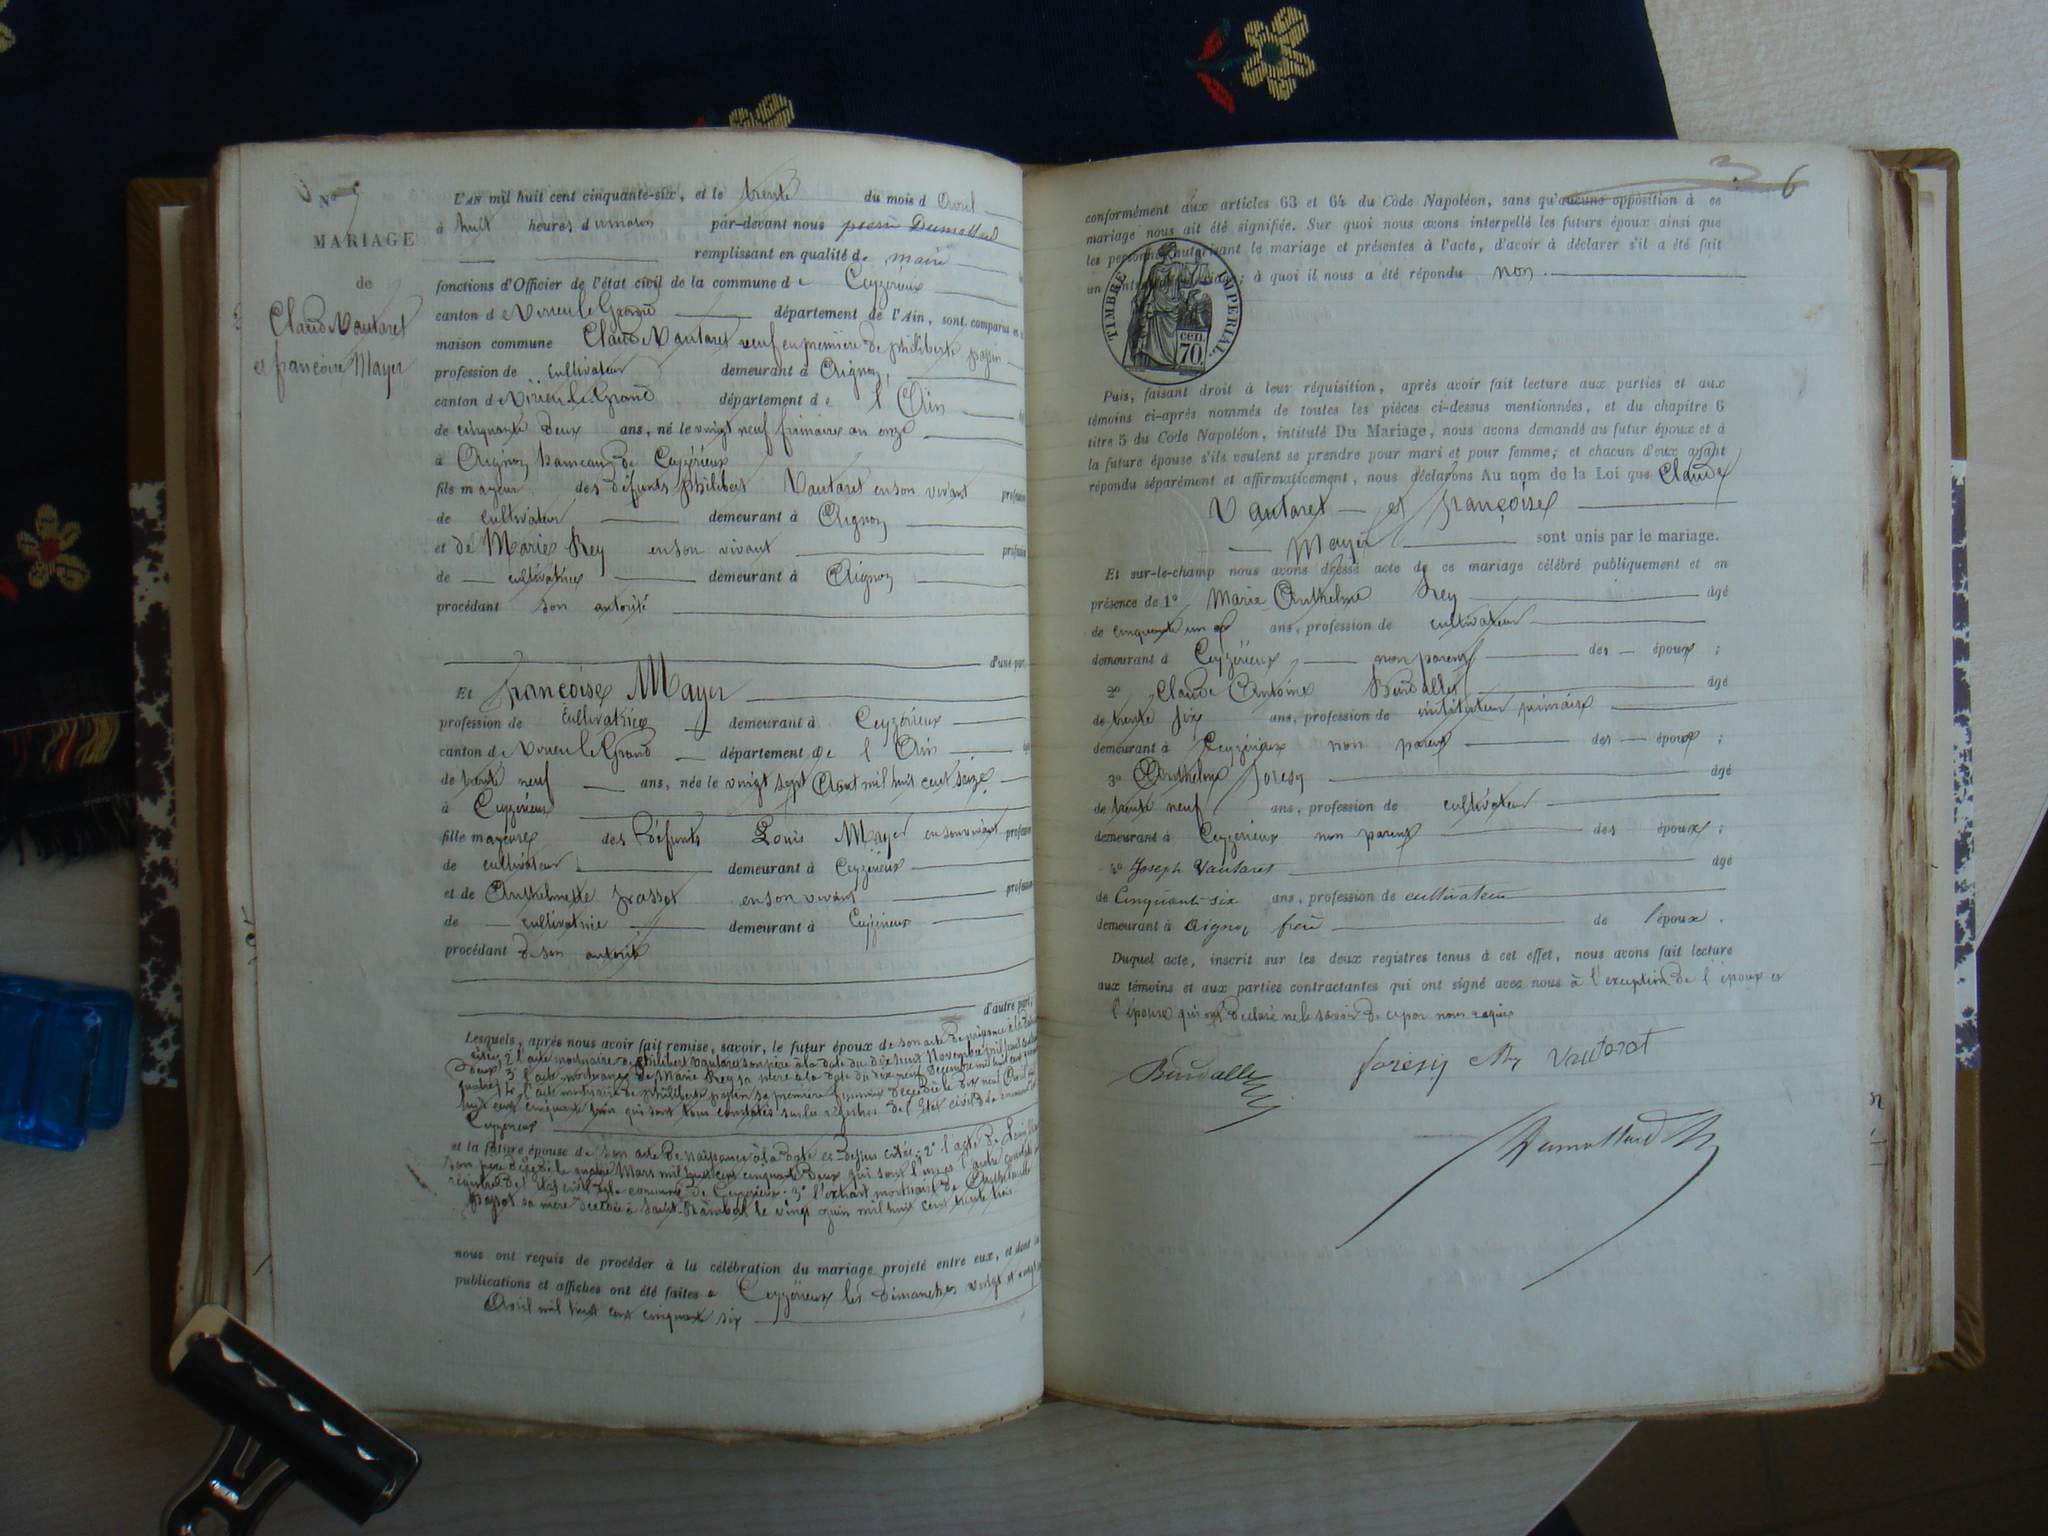 N
MARIAGE
de
Claude Vautaret
et françoise Mayer
L'AN mil huit cent cinquante-six, et le trente du mois d Avril
à huit heures d u matin par-devant nous pierre Dumollard
remplissant en qualité de maire
fonctions d'Officier de l'état civil de la commune de Ceyzérieux
canton de Virieu le Grand département de l'Ain, sont comparus en
maison commune Claude Vautaret veuf en première de philiberte
profession de cultivateur demeurant à Aignoz,
canton de Virieu le Grand département de l'Ain
de cinquante deux ans, né le vingt neuf frimaire an onze
à Aignoz hameau de Ceyzérieux
fils majeur des défunts philibert Vautaret en son vivant profession
de cultivateur demeurant à Aignoz
et de Marie Rey en son vivant profession
de cultivatrice demeurant à Aignoz
procédant son autorité
d'une part
Et françoise Mayer
profession de cultivatrice demeurant à Ceyzérieux
canton de Virieu le Grand département de l'Ain
de trente neuf ans, née le vingt sept Aout mil huit cent seize
à Ceyzérieux
fille majeure des Défunts Louis Mayer en son vivant profession
de cultivateur demeurant à Ceyzérieux
et de Anthelmette en son vivant profession
de cultivatrice demeurant à Ceyzérieux
procédant de son autorité
d'autre part;
Lesquels, après nous avoir fait remise, savoir, le futur époux de son acte de naissance à la date
citée; 2° l'acte mortuaire de philibert Vautaret son père à la date du dix huit Novembre mil huit cent
deux; 3° l'acte mortuaire de Marie Rey sa mère à la date du dix neuf Décembre mil huit cent
quatre; 4° l'acte mortuaire de philiberte sa première femme décédée le dix neuf Avril mil
huit cent cinquante qui sont tous constatés sur les registres de l'état civil de la commune de
Ceyzérieux
et la future épouse de son acte de naissance à la date ci dessus citée; 2° l'acte de Louis
son père décédé le quatre Mars mil huit cent cinquante deux qui sont l'un et l'autre constatés
registre de l'état civil de la commune de Ceyzérieux; 3° l'extrait mortuaire de Anthelmette
sa mère décédée à Saint-Rambert le vingt juin mil huit cent trente trois
nous ont requis de procéder à la célébration du mariage projeté entre eux, et dont les
publications et affiches ont été faites à Ceyzérieux les dimanches vingt et vingt
Avril mil huit cent cinquante six
3 6
conformément aux articles 63 et 64 du Code Napoléon, sans qu'aucune opposition à ce
mariage nous ait été signifiée. Sur quoi nous avons interpellé les futurs époux ainsi que
les personnes autorisant le mariage et présentes à l'acte, d'avoir à déclarer s'il a été fait
un contrat de mariage; à quoi il nous a été répondu non.
TIMBRE IMPERIAL
70 cen.
Puis, faisant droit à leur réquisition, après avoir fait lecture aux parties et aux
témoins ci-après nommés de toutes les pièces ci-dessus mentionnées, et du chapitre 6
titre 5 du Code Napoléon, intitulé Du Mariage, nous avons demandé au futur époux et à
la future épouse s'ils veulent se prendre pour mari et pour femme; et chacun d'eux ayant
répondu séparément et affirmativement, nous déclarons Au nom de la Loi que Claude
Vautaret et françoise
Mayer sont unis par le mariage.
Et sur-le-champ nous avons dressé acte de ce mariage célébré publiquement et en
présence de 1° Marie Anthelme Rey âgé
de cinquante un ans, profession de cultivateur
demeurant à Ceyzérieux non parent des époux;
2° Claude Antoine âgé
de trente six ans, profession de instituteur primaire
demeurant à Ceyzérieux non parent des époux;
3° Anthelme forésy âgé
de trente neuf ans, profession de cultivateur
demeurant à Ceyzérieux non parent des époux;
4° Joseph Vautaret âgé
de Cinquante six ans, profession de cultivateur
demeurant à Aignoz frère de l'époux.
Duquel acte, inscrit sur les deux registres tenus à cet effet, nous avons fait lecture
aux témoins et aux parties contractantes qui ont signé avec nous à l'exception de l'époux et
l'épouse qui ont déclaré ne le savoir de ce par nous requis
forésy Vautaret
Dumollard